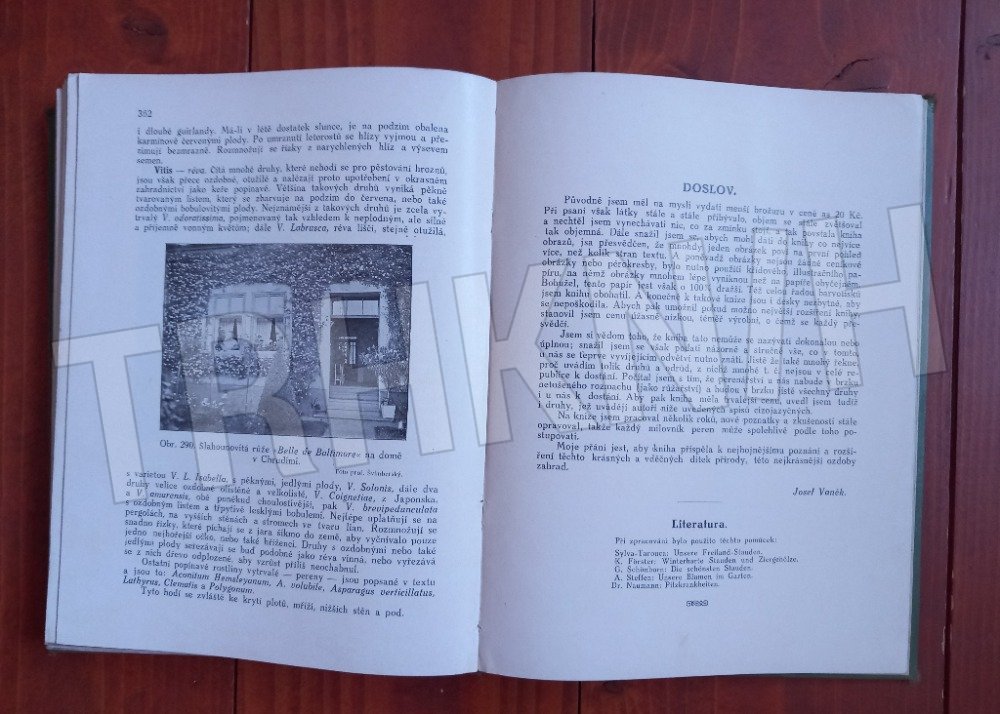 352
i dlouhé guirlandy. Má-li v létě dostatek slunce, je na podzim obalena
karmínově červenými plody. Po umrznutí letorostů se hlízy vyjmou a pře-
zimují bezmrazně. Rozmnožují se řízky z narychlených hlíz a výsevem
semen.
Vitis — réva. čítá mnohé druhy, které nehodí se pro pěstování hroznů,
jsou však přece ozdobné, otužilé a nalézají proto upotřebení v okrasném
zahradnictví jako keře popínavé. Většina takových druhů vyniká pěkně
tvarovaným listem, který se zbarvuje na podzim do červena, nebo také
ozdobnými bobulovitými plody. Nejznámější z takových druhů je zcela vy-
trvalý V. odoratissima, pojmenovaný tak vzhledem k neplodným, ale silně
a příjemně vonným květům; dále V. Labrusca, réva liščí, stejně otužilá,
Obr. 290. Šlahounovitá růže »Belle de Baltimore« na domě
v Chrudimi.
Foto prof.
s varietou V. L. Isabella, s pěknými, jedlými plody, V. Solonis, dále dva
druhy velice ozdobně olistěné a velkolisté, V. Coignetiae, z Japonska,
a V amurensis, obě poněkud choulostivější, pak V. brevipedunculata
s ozdobným listem a třpytivě lesklými bobulemi. Nejlépe uplatňují se na
pergolách, na vyšších stěnách a stromech ve tvaru lian. Rozmnožují se
snadno řízky, které píchají se z jara šikmo do země, aby vyčnívalo pouze
jedno nejhořejší očko, nebo také hříženci. Druhy s ozdobnými nebo také
jedlými plody seřezávají se buď podobně jako réva vinná, nebo vyřezává
se z nich dřevo odplozené, aby vzrůst příliš neochabnul.
Ostatní popínavé rostliny vytrvalé — pereny — jsou popsané v textu
a jsou to: Aconitum Hemsleyanum, A. volubile, Asparagus verticillatus,
Lathyrus, Clematis a Polygonum.
Tyto hodí se zvláště ke krytí plotů, mříží, nižších stěn a pod.
DOSLOV.
Původně jsem měl na mysli vydati menší brožuru v ceně as 20 Kč.
Při psaní však látky stále a stále přibývalo, objem se stále zvětšoval
a nechtěl jsem vynechávati nic, co za zmínku stojí a tak povstala kniha
tak objemná. Dále snažil jsem se, abych mohl dáti do knihy co nejvíce
obrazů, jsa přesvědčen, že mnohdy jeden obrázek poví na první pohled
více, než kolik stran textu. A poněvadž obrázky nejsou žádné ceníkové
obrázky nebo pérokresby, bylo nutno použíti křídového, illustračního pa-
píru, na němž obrázky mnohem lépe vyniknou než na papíře obyčejném.
Bohužel, tento papír jest však o 100% dražší. Též celou řadou barvotisků
jsem knihu obohatil. A konečně k takové knize jsou i desky nezbytné, aby
se nepoškodila. Abych pak umožnil pokud možno největší rozšíření knihy,
stanovil jsem cenu úžasně nízkou, téměř výrobní, o čemž se každý pře-
svědčí.
Jsem si vědom toho, že kniha tato nemůže se nazývati dokonalou nebo
úplnou; snažil jsem se však podati názorně a stručně vše, co v tomto,
u nás se teprve vyvíjejícím odvětví nutno znáti. Jistě že také mnohý řekne,
proč uvádím tolik druhů a odrůd, z nichž mnohé t. č. nejsou v celé re-
publice k dostání. Počítal jsem s tím, že perenářství u nás nabude v brzku
netušeného rozmachu (jako růžařství) a budou v brzku jistě všechny druhy
i u nás k dostání. Aby pak kniha měla trvalejší cenu, uvedl jsem tudíž
i druhy, jež uvádějí autoři níže uvedených spisů cizojazyčných.
Na knize jsem pracoval několik roků, nové poznatky a zkušenosti stále
opravoval, takže každý milovník peren může spolehlivě podle toho po-
stupovati.
Moje přání jest, aby kniha přispěla k nejhojnějšímu poznání a rozší-
ření těchto krásných a vděčných dítek přírody, této nejkrásnější ozdoby
zahrad.
Josef Vaněk.
Literatura.
Při zpracování bylo použito těchto pomůcek:
Sylva-Tarouca: Unsere Freiland-Stauden.
K. Förster: Winterharte Stauden und Ziergehölze.
G. Schönborn: Die schönsten Stauden.
A. Steffen: Unsere Blumen im Garten.
Dr. Naumann: Pilzkrankheiten.
TRIKNIH